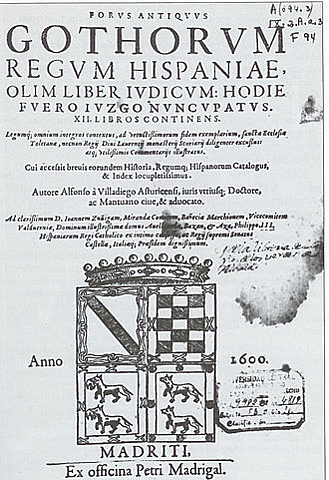 FORVS ANTIQVVS
GOTHORVM
REGVM HISPANIAE,
OLIM LIBER IVDICVM: HODIE
FVERO IVZGO NVNCVPATVS.
XII. LIBROS CONTINENS.
Legumq; omnium integros contextus, ad vetustissimorum fidem exemplarium, sanctæ Ecclesiæ
Toletanæ, necnon Regij Diui Laurentij monasterij Scorialis diligenter excussus:
atq; vtilissimis Commentarijs illustratus.
Cui accessit breuis eorundem Historia, Regumq; Hispanorum Catalogus,
& Index locupletissimus.
Autore Alfonso à Villadiego Asturicensi, iuris vtriusq; Doctore,
ac Mantuano ciue, & aduocato.
Ad clarissimum D. Ioannem Zuñigam, Miranda Comitem, Marchionem, Vicecomitem
Valduerniæ, Dominum illustrissimæ domus Bazan, & Aza, Philippo III.
Hispaniarum Regi Catholico ex intimo Regijq; supremi Senatus
Castella, Italiaq; Præsidem dignissimum.
A (094.3)
F 94
Anno 1600.
MADRITI,
Ex officina Petri Madrigal.